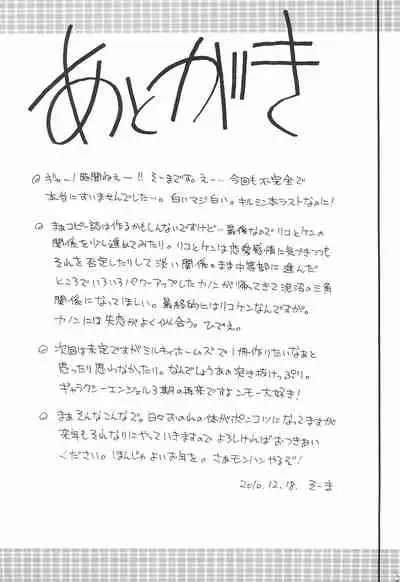 あとがき
◎ ギャー！時間ねぇー!! そーまです。えー…今回も不完全で
本当にすいませんでした…。白いマジ白い。キルミン本ラストなのに！
◎ まぁコピー誌は作るかもしんないですけど…最後なのでリコとケンの
関係を少し進めてみたり。リコとケンは恋愛感情に気づきつつも
それを否定したりして淡い関係のまま中等部に進んだ
ところでいろいろパワーアップしたカノンが帰ってきて泥沼の三角
関係になってほしい。最終的にはリコケンなんですが。
カノンには失恋がよく似合う。ひでぇ。
◎ 次回は未定ですがミルキィホームズで1冊作りたいなぁと
思ったり思わなかったり。なんでしょうあの突き抜けっぷり。
ギャラクシーエンジェル3期の再来ですよンモー大好き！
◎ まぁそんなこんなで。日々おのれの体がポンコツになってますが
来年もそれなりにやっていきますので よろしければおつきあい
ください。ほんじゃよいお年を。さぁモンハンやるぞ！
2010.12.18. そーま